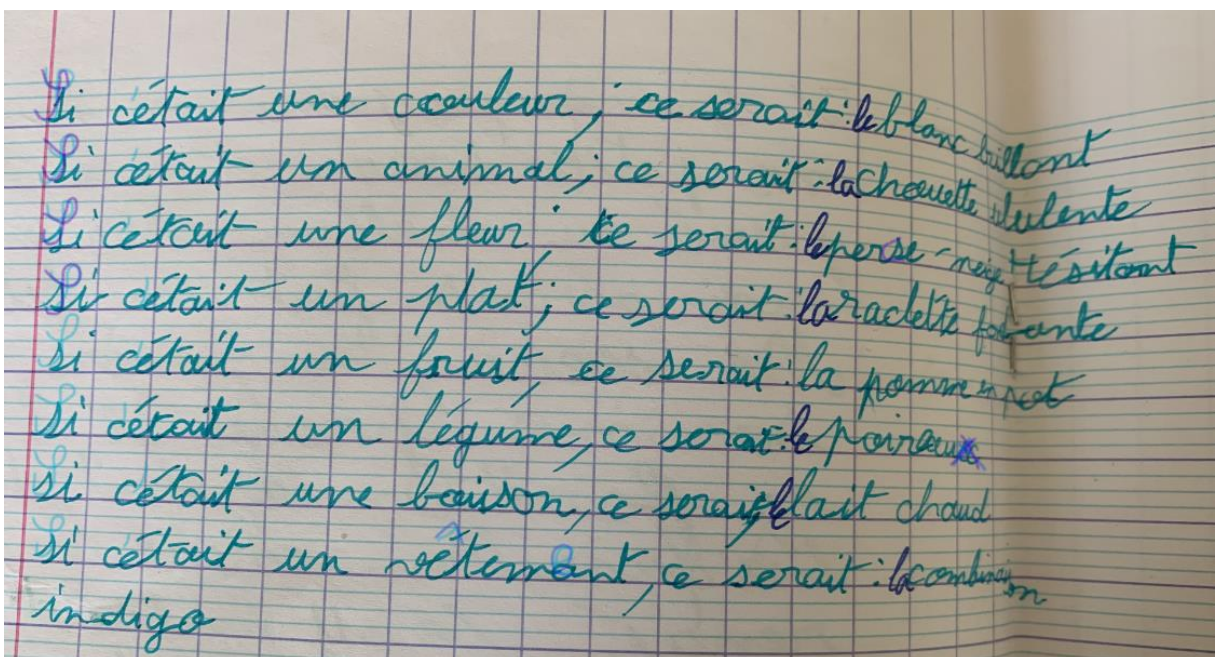 Si c'était une ccouleur, ce serait : le blanc brillant
Si c'était un animal, ce serait : la Chouette ululente
Si c'était une fleur, ce serait : le perse-neige Hésitant
Si c'était un plat, ce serait : la raclette
Si c'était un fruit, ce serait : la pomme
Si c'était un légume, ce serait : le poireau
si c'était une boison, ce serait, le lait chaud
Si c'était un vêtement, ce serait : la combinaison
indigo